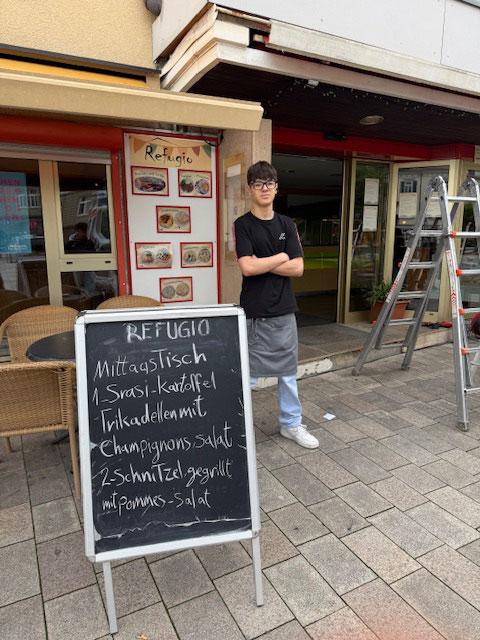 Refugio
REFUGIO
MittagsTisch
1-Srasi-Kartoffel
Frikadellen mit
Champignons, Salat
2-Schnitzel, gegrillt
mit Pommes-Salat